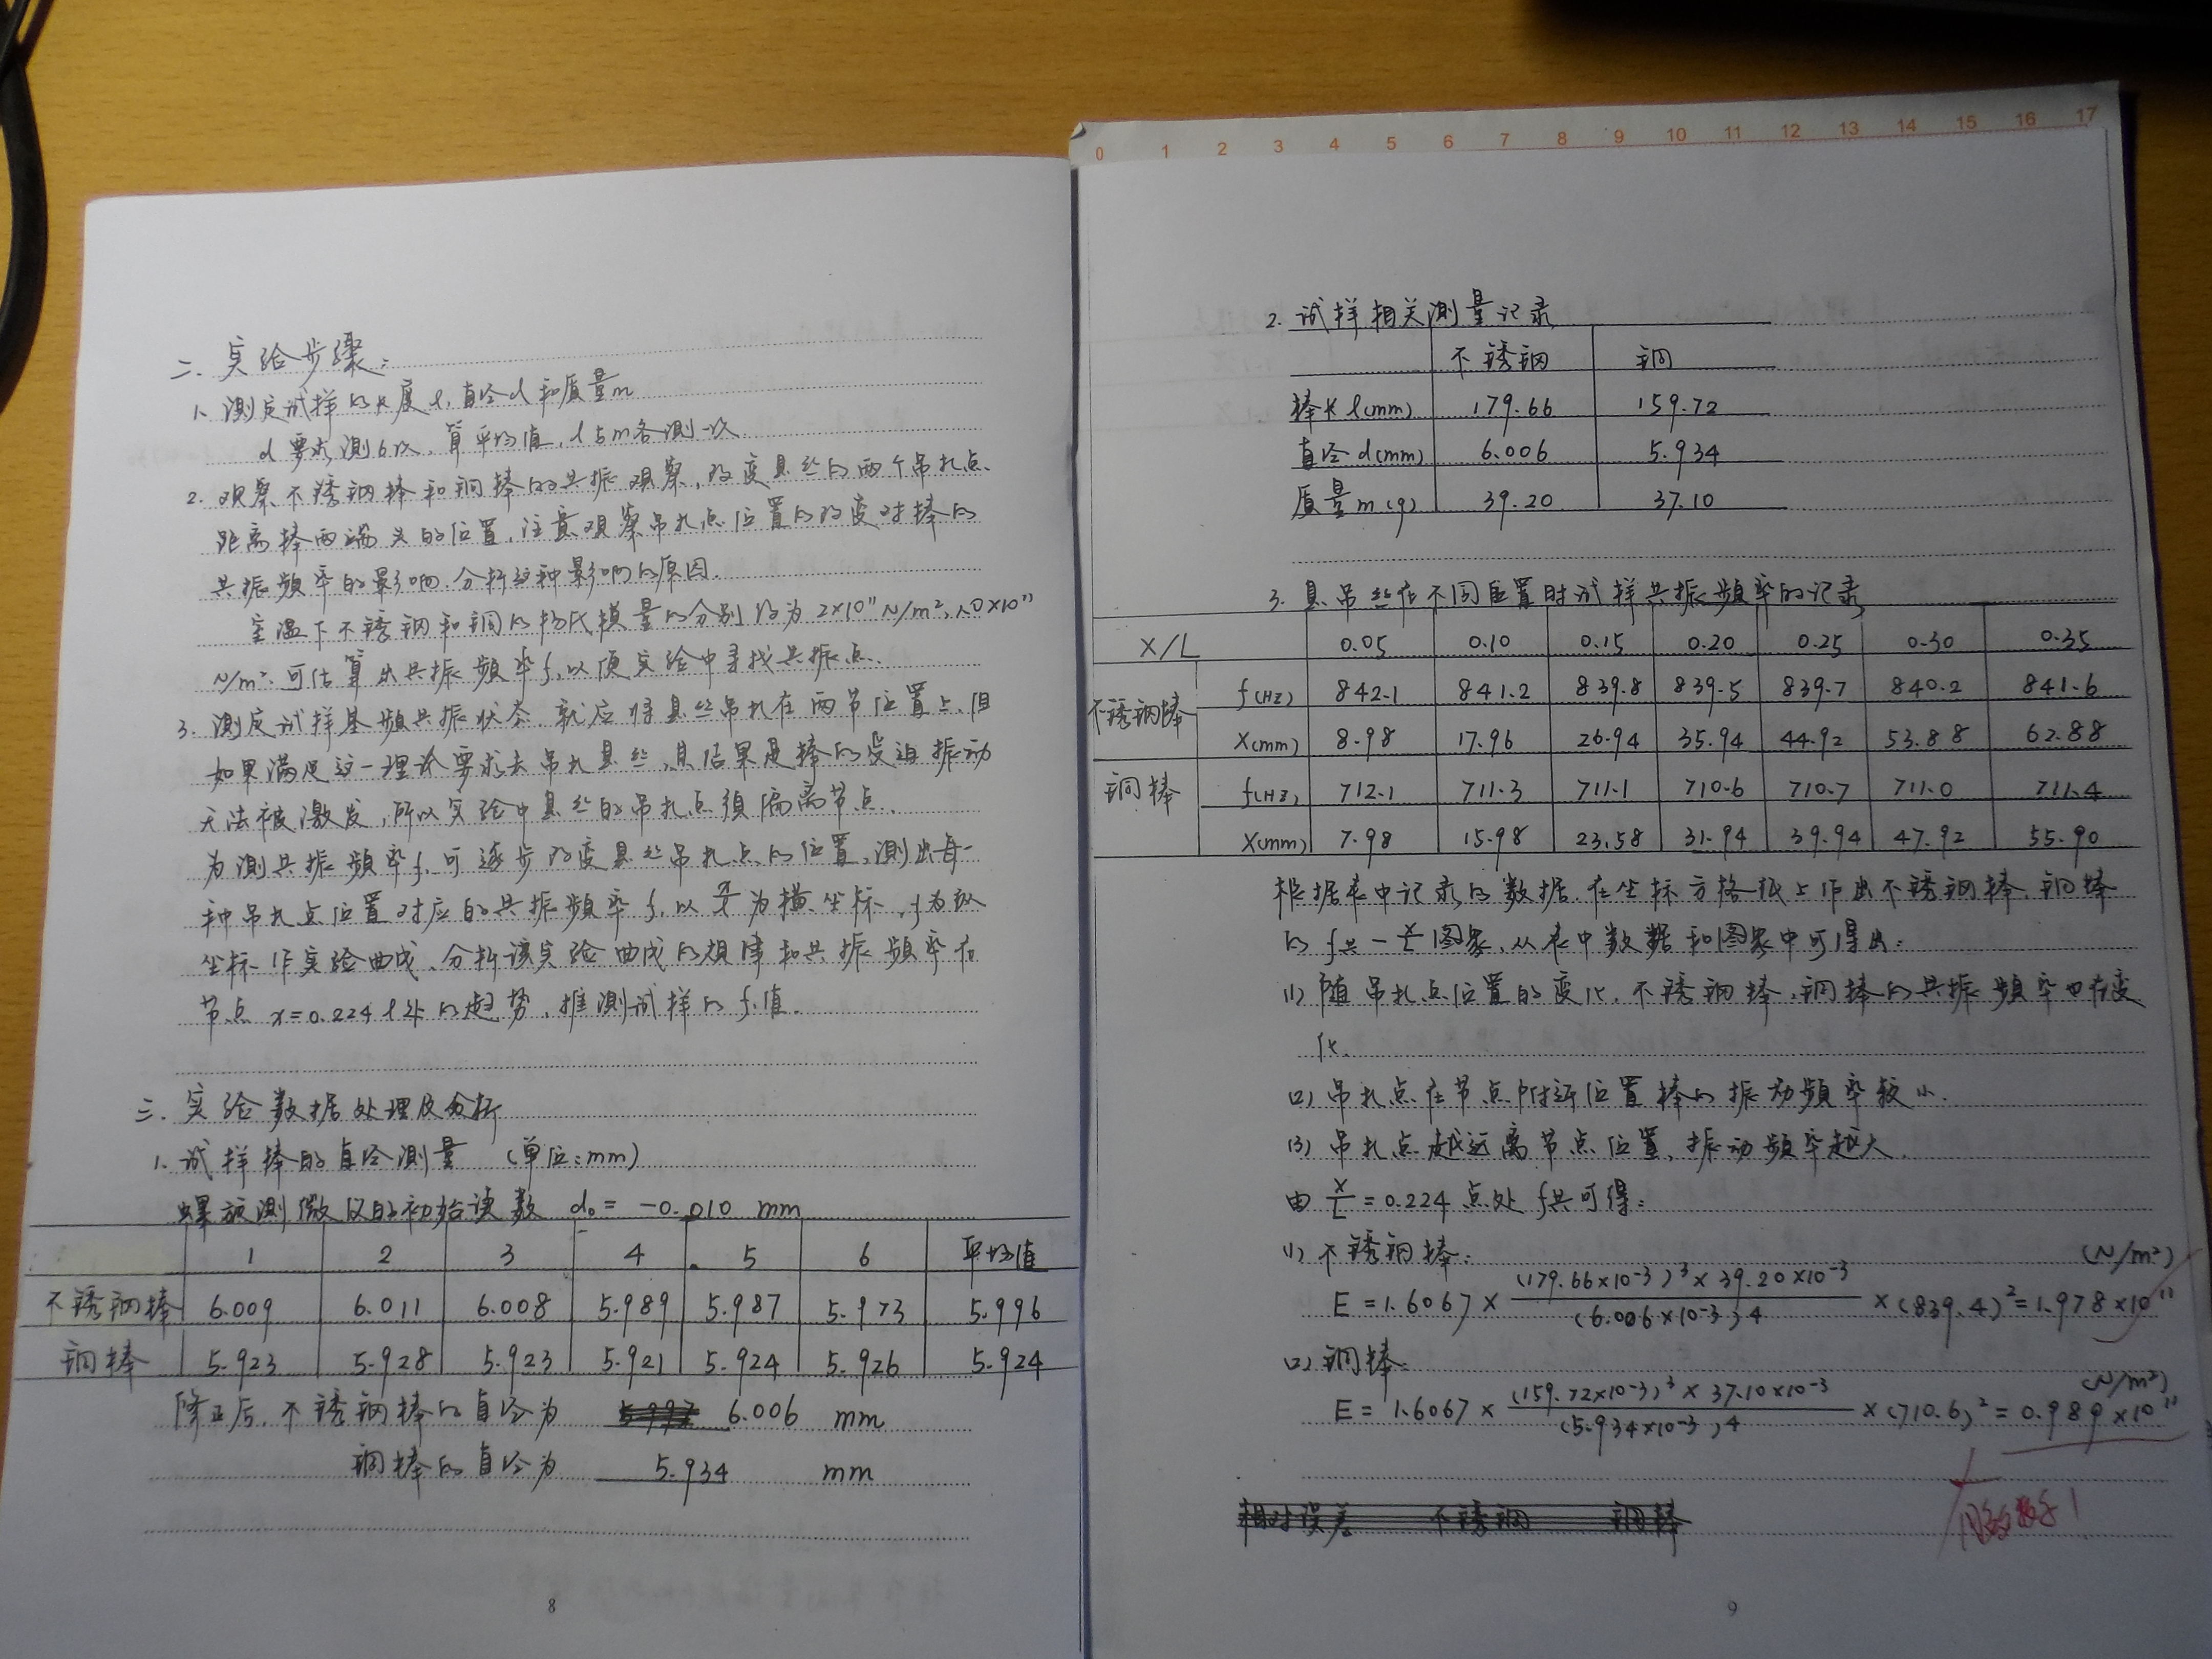 二. 实验步骤:
1. 测定试样的长度l, 直径d和质量m
d要求测6次, 算平均值, l与m各测一次.
2. 观察不锈钢棒和铜棒的共振观察, 改变悬丝的两个吊扎点
距离棒两端头的位置, 注意观察吊扎点位置的改变对棒的
共振频率的影响, 分析这种影响的原因.
室温下不锈钢和铜的杨氏模量的分别约为 2×10¹¹ N/m², 1.0×10¹¹
N/m². 可估算出共振频率f, 以便实验中寻找共振点.
3. 测定试样基频共振状态, 就应将悬丝吊扎在两节位置上, 但
如果满足这一理论要求去吊扎悬丝, 其结果是棒的受迫振动
无法被激发, 所以实验中悬丝的吊扎点须偏离节点.
为测共振频率f, 可逐步改变悬丝吊扎点的位置, 测出每一
种吊扎点位置对应的共振频率f, 以 为横坐标, f为纵
坐标作实验曲线, 分析该实验曲线的规律和共振频率在
节点 x=0.224l处的趋势, 推测试样的f值.
三. 实验数据处理及分析
1. 试样棒的直径测量 (单位:mm)
螺旋测微仪的初始读数 d₀ = -0.010 mm
1 2 3 4 5 6 平均值
不锈钢棒 6.009 6.011 6.008 5.989 5.987 5.973 5.996
铜棒 5.923 5.928 5.923 5.921 5.924 5.926 5.924
修正后, 不锈钢棒的直径为 6.006 mm
铜棒的直径为 5.934 mm
8
0 1 2 3 4 5 6 7 8 9 10 11 12 13 14 15 16 17
2. 试样相关测量记录
不锈钢 铜
棒长l(mm) 179.66 159.72
直径d(mm) 6.006 5.934
质量m(g) 39.20 37.10
3. 悬吊丝在不同位置时试样共振频率的记录
X/L 0.05 0.10 0.15 0.20 0.25 0.30 0.35
不锈钢棒 f(HZ) 842.1 841.2 839.8 839.5 839.7 840.2 841.6
X(mm) 8.98 17.96 26.94 35.94 44.92 53.88 62.88
铜棒 f(HZ) 712.1 711.3 711.1 710.6 710.7 711.0 711.4
X(mm) 7.98 15.98 23.58 31.94 39.94 47.92 55.90
根据表中记录的数据, 在坐标方格纸上作出不锈钢棒、铜棒
的 f共—x/L 图象, 从表中数据和图象中可得出:
(1) 随吊扎点位置的变化, 不锈钢棒、铜棒的共振频率也有变
化.
(2) 吊扎点在节点附近位置棒的振动频率较小.
(3) 吊扎点越远离节点位置, 振动频率越大.
由 x/L = 0.224 点处 f共可得:
(1) 不锈钢棒:
E = 1.6067 × (179.66×10⁻³)³ × 39.20×10⁻³ / (6.006×10⁻³)4 × (839.4)² = 1.978×10¹¹ (N/m²)
(2) 铜棒:
E = 1.6067 × (159.72×10⁻³)³ × 37.10×10⁻³ / (5.934×10⁻³)4 × (710.6)² = 0.989×10¹¹ (N/m²)
相对误差 不锈钢 铜棒
有效数字!
9